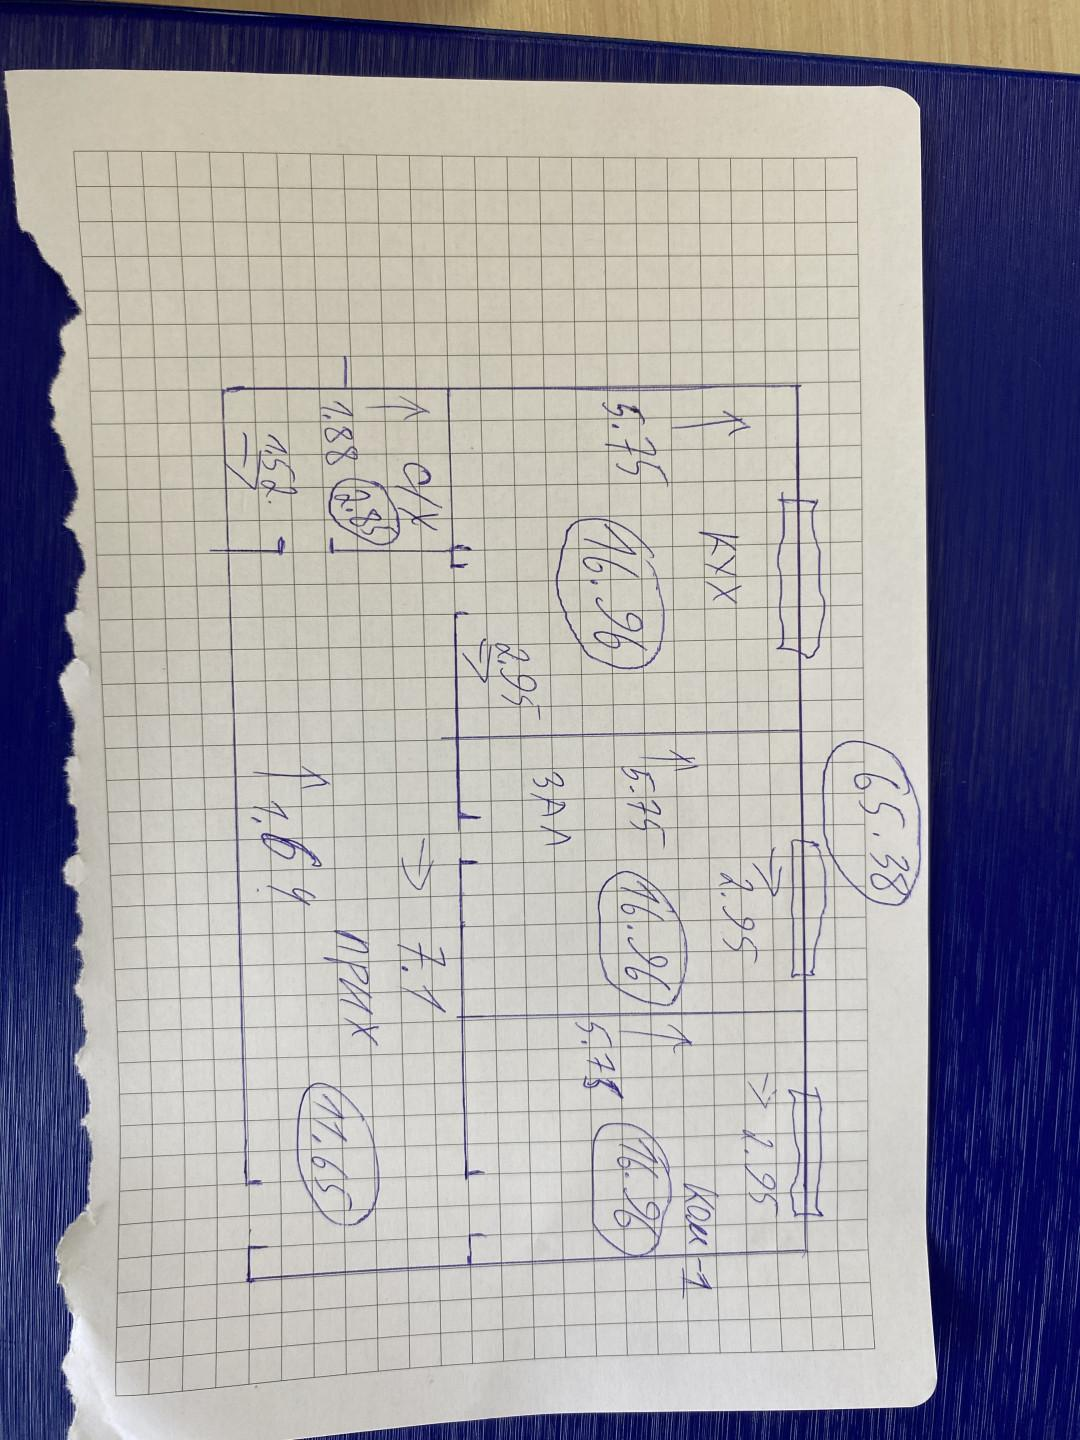 65.38
КУХ
5.75
16.96
2.95
2.95
5.75
16.96
ЗАЛ
2.95
Ком-1
5.75
16.96
С/У
1.88
2.85
1.52
7.1
1.64
ПРИХ
11.65